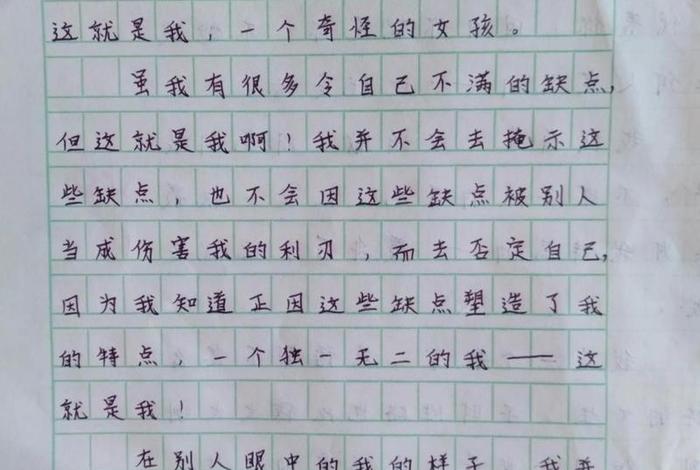 这就是我，一个奇怪的女孩。
虽我有很多令自己不满的缺点，
但这就是我啊！我并不会去掩示这
些缺点，也不会因这些缺点被别人
当成伤害我的利刃，而去否定自己，
因为我知道正因这些缺点塑造了我
的特点，一个独一无二的我——这
就是我！
在别人眼中的我的样子，我并